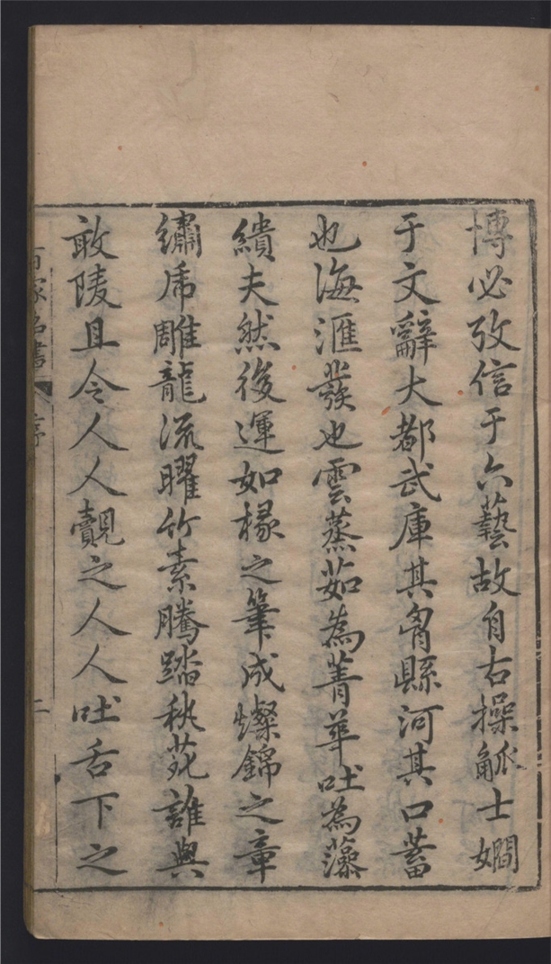 博必攷信于六藝故自古操觚士嫺
于文辭大都武庫其胷縣河其口蓄
也海滙發也雲蒸茹為菁華吐為藻
繢夫然後運如椽之筆成燦錦之章
繡虎雕龍流曜竹素騰踏秇苑誰與
敢陵且令人人覿之人人吐舌下之
百家名書 序 二